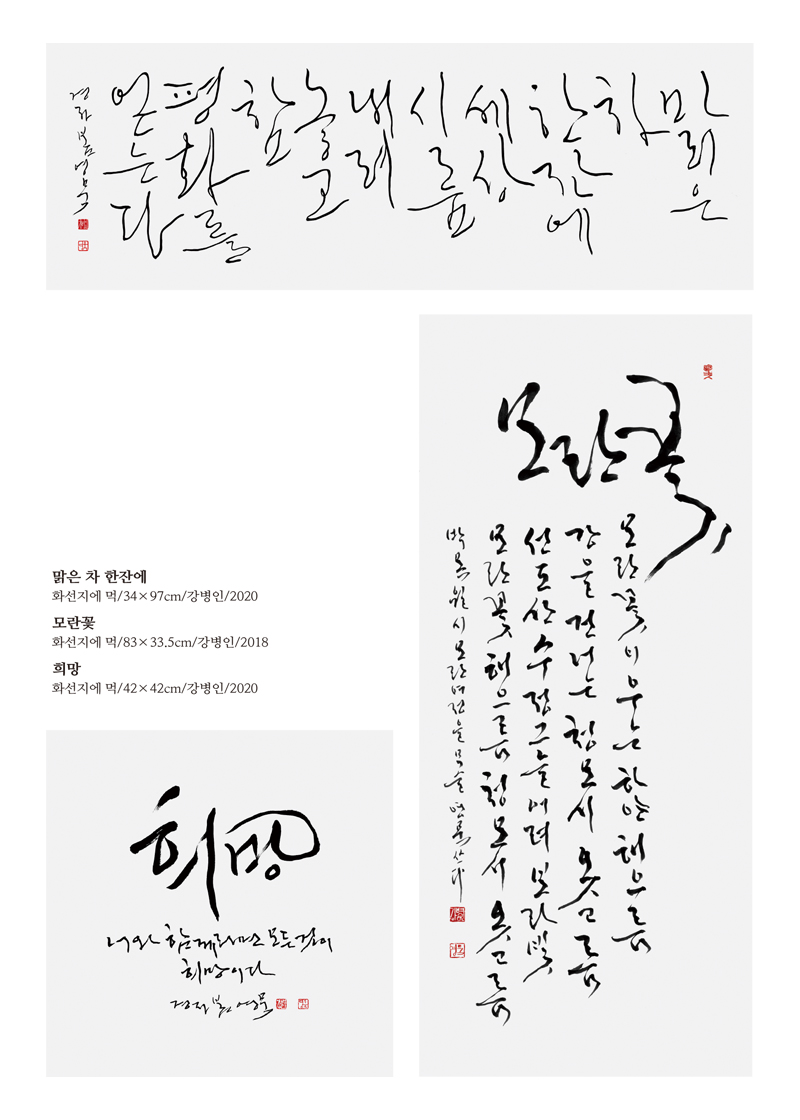 맑은
차
한잔에
세상
시름
내려
놓고
참
평화를
얻는다
경자 봄 영묵
맑은 차 한잔에
화선지에 먹/34×97cm/강병인/2020
모란꽃
화선지에 먹/83×33.5cm/강병인/2018
희망
화선지에 먹/42×42cm/강병인/2020
모란꽃
모란꽃 이우는 하얀 해으름
강을 건너는 청모시 옷고름
선도산 수정그늘 어려 보라빛
모란꽃 해으름 청모시 옷고름
박목월 시 모란여정을 무술
희망
너와 모든것이
희망이다
경자 봄 영묵